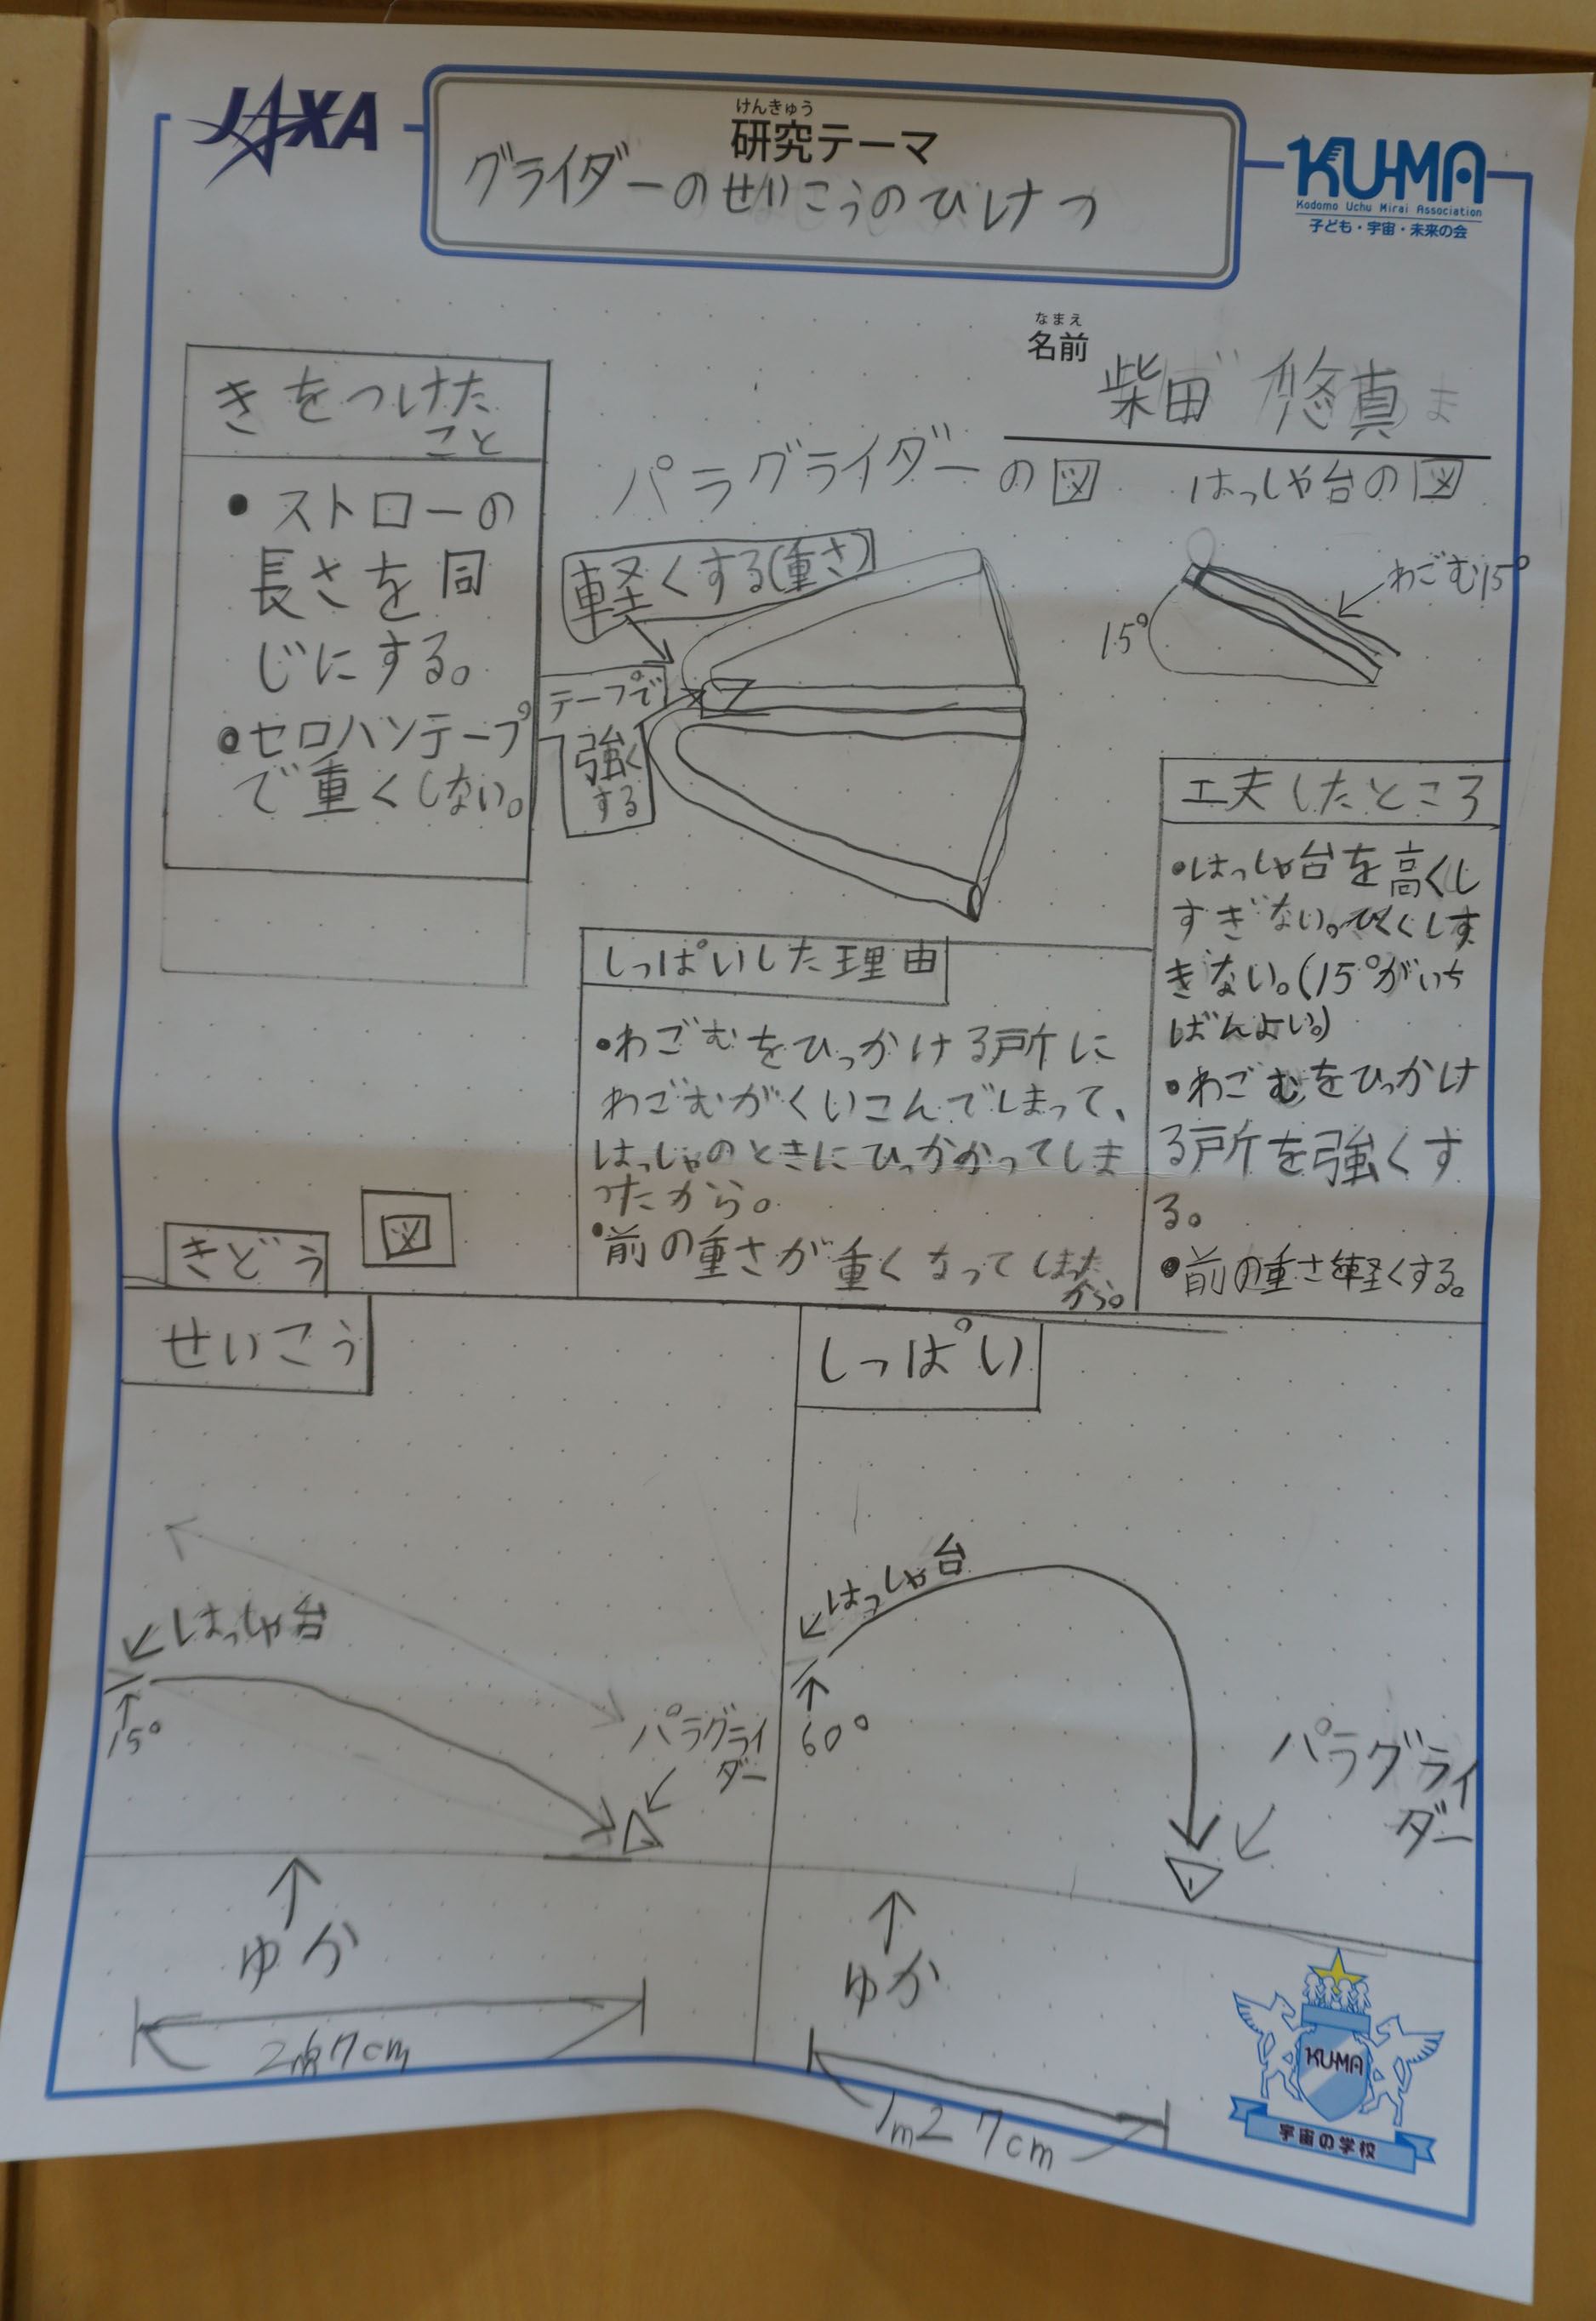 JAXA
けんきゅう
研究テーマ
グライダーのせいこうのひけつ
KU-MA
Kodomo Uchu Mirai Association
子ども・宇宙・未来の会
なまえ
名前
柴田 悠真
きをつけた
こと
・ストローの
長さを同
じにする。
・セロハンテープ
で重くしない。
パラグライダーの図
軽くする(重さ)
テープで
強く
する
はっしゃ台の図
わごむ15°
15°
工夫したところ
・はっしゃ台を高くし
すぎない。ひくくしす
ぎない。(15°がいち
ばんよい。)
・わごむをひっかけ
る所を強くす
る。
・前の重さ軽くする。
しっぱいした理由
・わごむをひっかける所に
わごむがくいこんでしまって、
はっしゃのときにひっかかってしま
ったから。
・前の重さが重くなってしまった
から。
きどう
図
せいこう
はっしゃ台
15°
パラグライ
ダー
ゆか
2m7cm
しっぱい
はっしゃ台
60°
パラグライ
ダー
ゆか
1m27cm
KU-MA
宇宙の学校